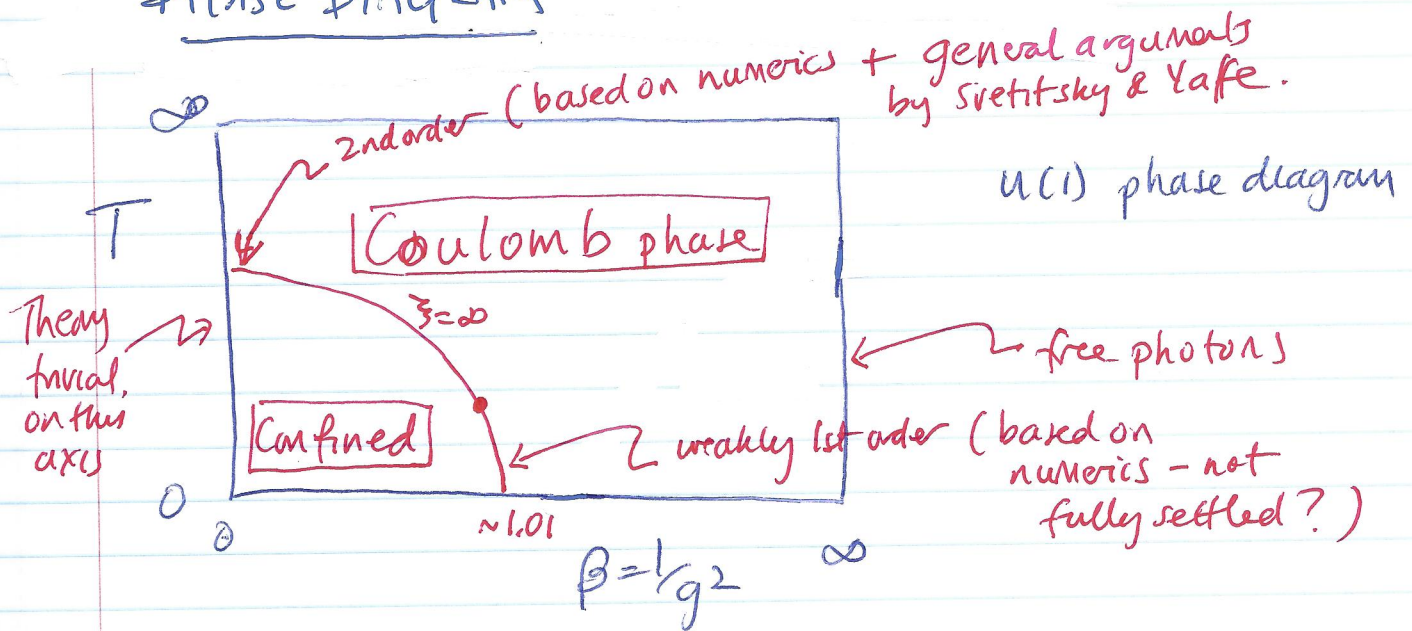 Phase Diagrams
2nd order (based on numerics + general arguments
by Svetitsky & Yaffe.
∞
U(1) phase diagram
T
Coulomb phase
ξ=∞
Theory
trivial,
on this
axis
free photons
Confined
weakly 1st order (based on
numerics - not
fully settled?)
0
0
~1.01
∞
β=1/g2